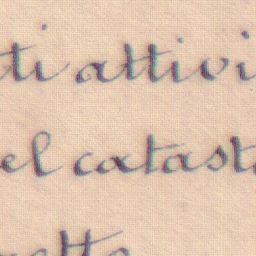 ti attivi
el catast
ette